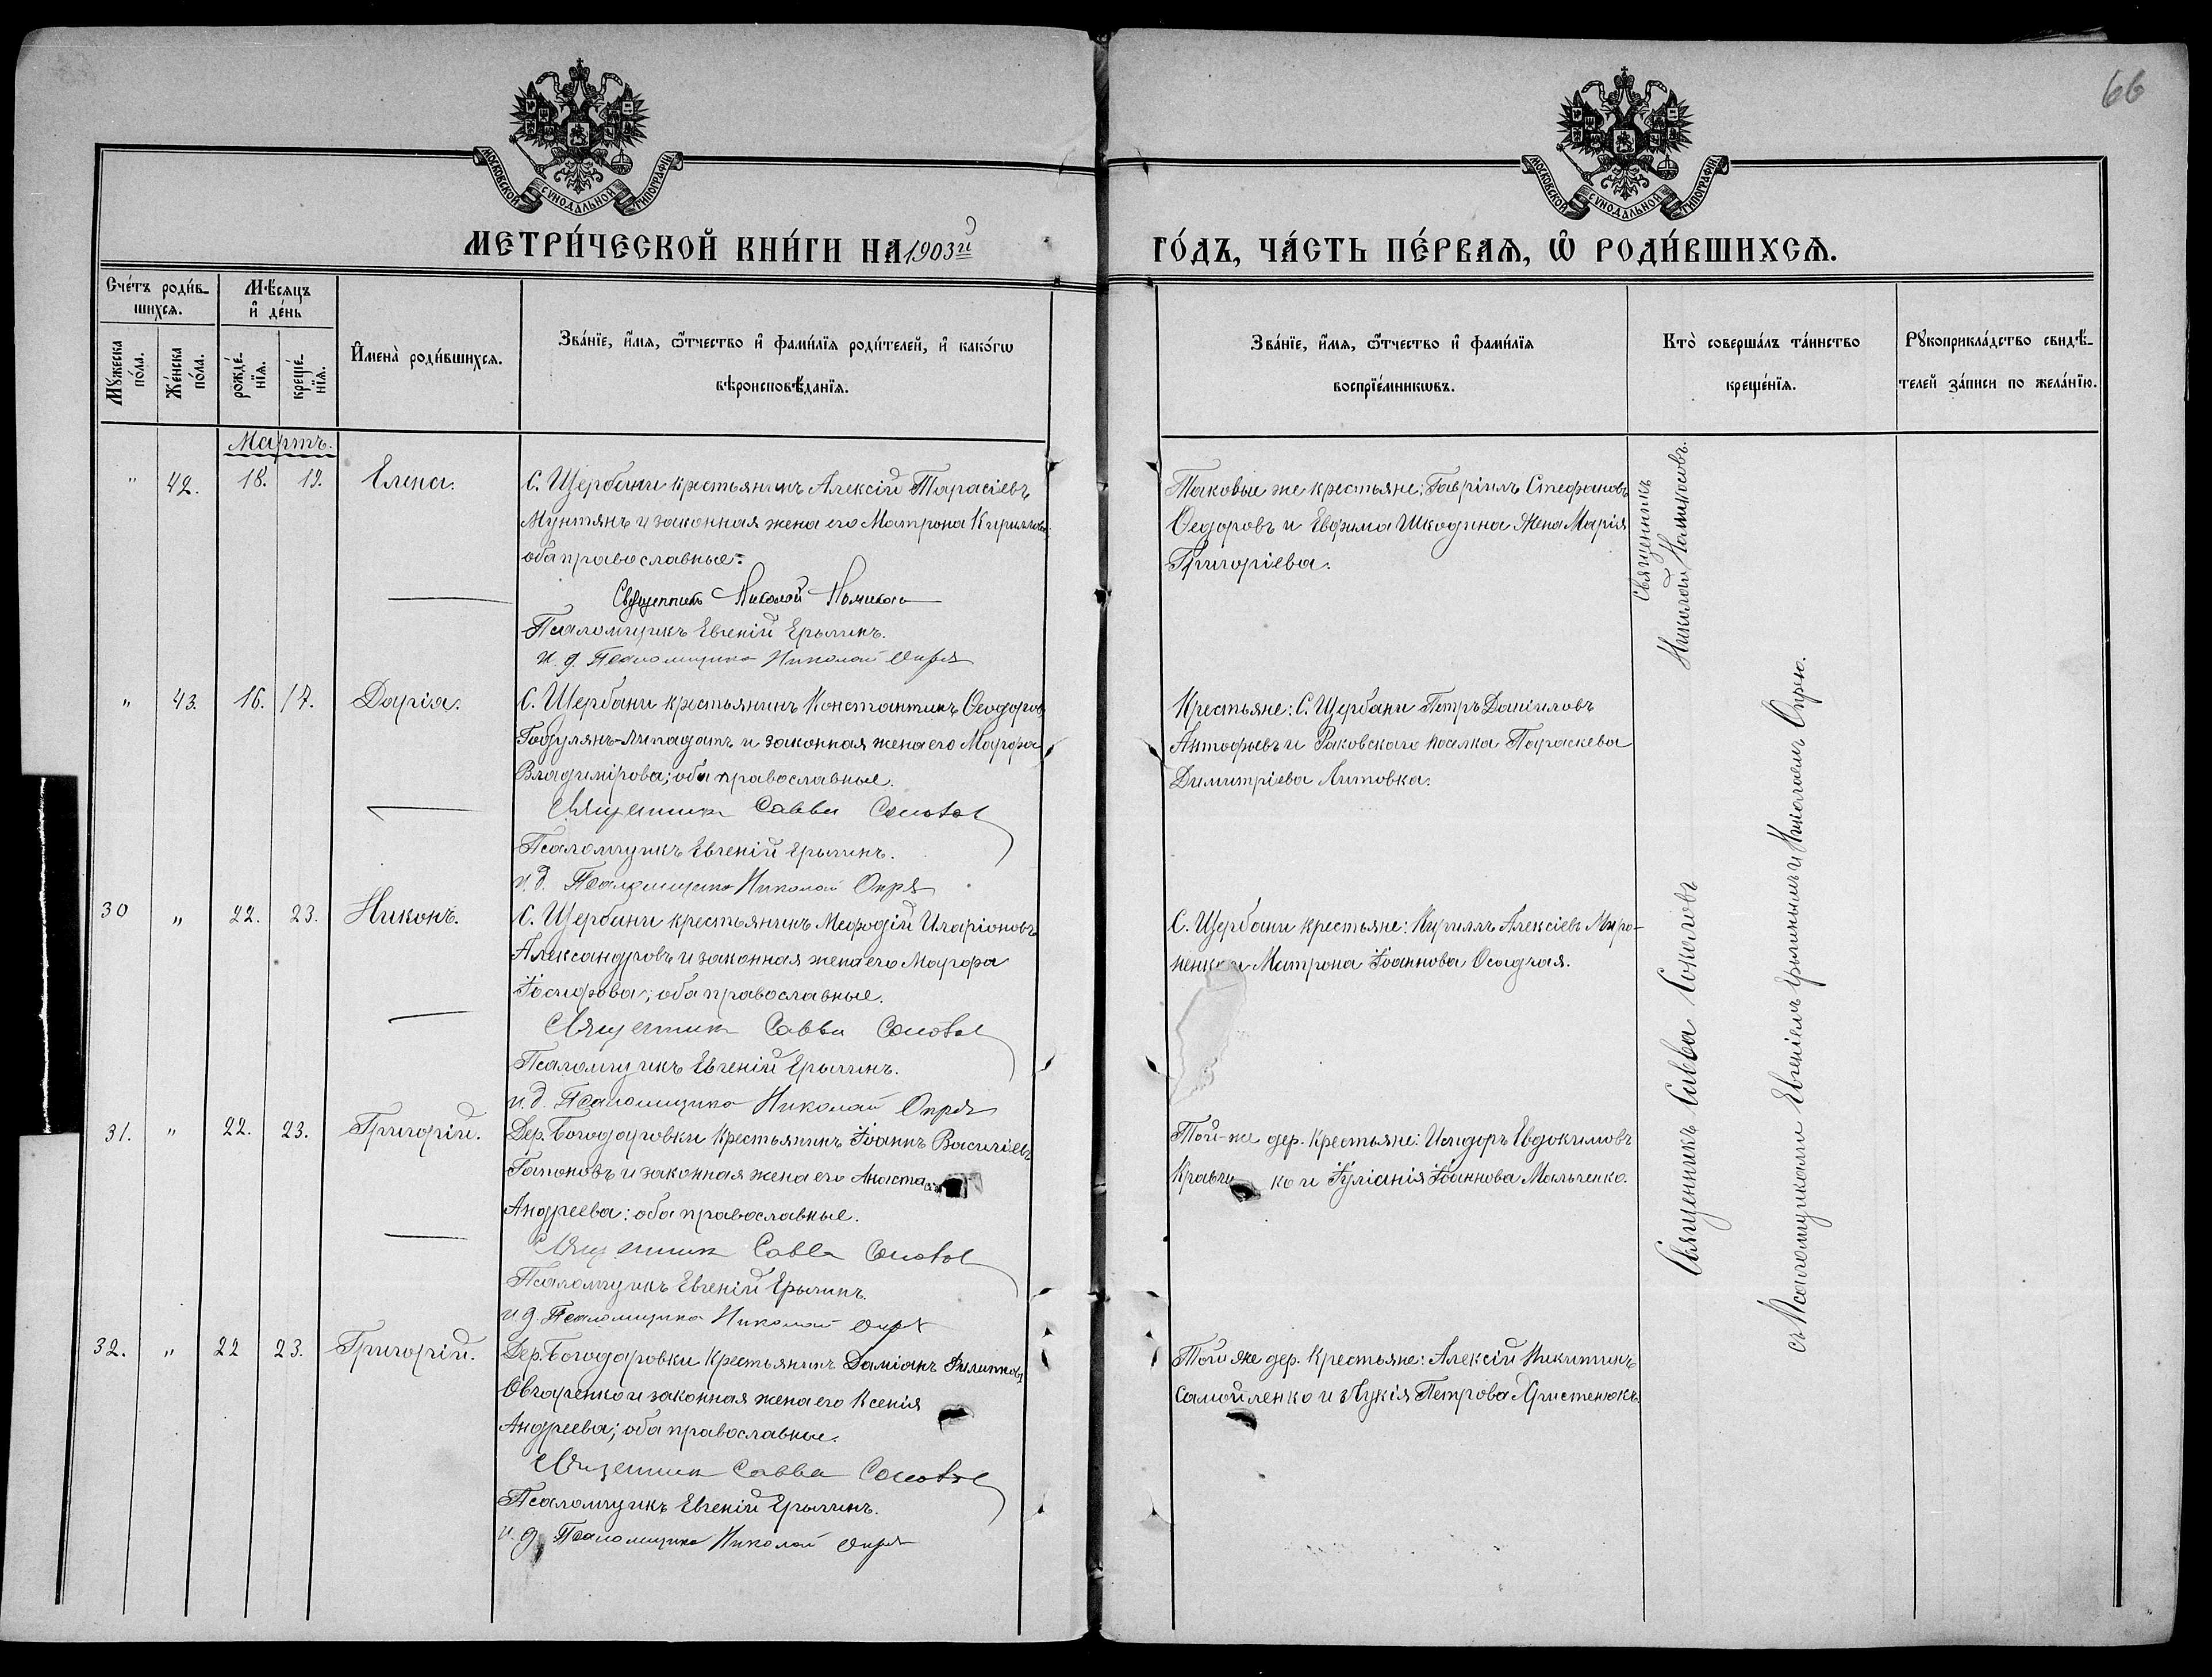 66
МОСКОВСКОЙ СѴНОДАЛЬНОЙ ТИПОГРАФІИ
МОСКОВСКОЙ СѴНОДАЛЬНОЙ ТИПОГРАФІИ
МЕТРИ́ЧЕСКОЙ КНИ́ГИ НА 1903й
ГО́ДЪ, ЧА́СТЬ ПЕ́РВАѦ, Ѡ РОДИ́ВШИХСѦ.
Сче́тъ роди́в-
шихсѧ.
Мꙋжеска по́ла.
Же́нска по́ла.
Мѣ́сяцъ
и҆ де́нь
рожде́-
нїѧ.
креще́-
нїѧ.
И҆мена̀ роди́вшихсѧ.
Зва́нїе, и҆́мѧ, ѻ҆́тчество и҆ фами́лїѧ роди́телей, и҆ како́гѡ
вѣроисповѣ́данїѧ.
Зва́нїе, и҆́мѧ, ѻ҆́тчество и҆ фами́лїѧ
воспрїе́мникѡвъ.
Кто̀ соверша́лъ та́инство
креще́нїѧ.
Рꙋкоприкла́дство свидѣ́-
телей за́писи по жела́нїю.
Мартъ.
" 42. 18. 19. Елена.
С. Щербани крестьянинъ Алексій Тарасіевъ
Мунтянъ и законная жена его Матрона Кириллова
оба православные.
Священникъ Николай Номиков
Псаломщикъ Евгеній Ерыгинъ.
и. д. Псаломщика Николай Опря
Таковые же крестьяне: Гавріилъ Стефановъ
Ѳедоровъ и Евфима Шкодина жена Марія
Григоріева.
Священникъ
Николай Номиковъ.
" 43. 16. 17. Дарія.
С. Щербани крестьянинъ Константинъ Ѳеодоровъ
и законная жена его Марфа
Владимірова; оба православные.
Священник Савва Соколов
Псаломщикъ Евгеній Ерыгинъ.
и. д. Псаломщика Николай Опря
Крестьяне: С. Щербани Петръ Даніиловъ
Антофьевъ и Раковскаго поселка Параскева
Димитріева Литовка.
30 " 22. 23. Никонъ.
С. Щербани крестьянинъ Мефодій Иларіоновъ
Александровъ и законная жена его Марфа
Іосифова; оба православные.
Священник Савва Соколов
Псаломщикъ Евгеній Ерыгинъ.
и. д. Псаломщика Николай Опря
С. Щербани крестьяне: Кириллъ Алексіевъ Миро-
ненко и Матрона Іоаннова Осадчая.
31. " 22. 23. Григорій.
Дер. Богодаровки крестьянинъ Іоаннъ Василіевъ
Гапоновъ и законная жена его Анастас
Андреева: оба православные.
Священник Савва Соколов
Псаломщикъ Евгеній Ерыгинъ.
и. д. Псаломщика Николай Опря
Той-же дер. крестьяне: Исидоръ Евдокимовъ
Кравчи ко и Іуліанія Іоаннова Мальченко.
32. " 22 23. Григорій.
Дер. Богодаровки крестьянинъ Даміанъ Филипповъ
Овчаренко и законная жена его Ксенія
Андреева; оба православные.
Священник Савва Соколов
Псаломщикъ Евгеній Ерыгинъ.
и. д. Псаломщика Николай Опря
Той же дер. крестьяне: Алексій Никитинъ
Самойленко и Лукія Петрова Христенюкъ.
Священникъ Савва Соколовъ
съ Псаломщиками Евгеніемъ Ерыгинымъ и Николаемъ Опрею.